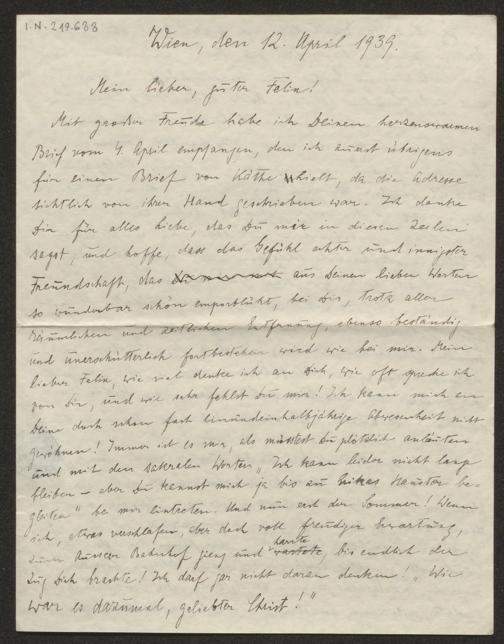 I.N. 219.688
Wien, den 12. April 1939.
Mein lieber, guter Felix!
Mit großer Freude habe ich Deinen herzenswarmen
Brief vom 4. April empfangen, den ich zuerst übrigens
für einen Brief von Käthe hielt, da die Adresse
sichtlich von ihrer Hand geschrieben war. Ich danke
Dir für alles Liebe, das Du mir in diesen Zeilen
sagst, und hoffe, dass das Gefühl echter und innigster
Freundschaft, das aus Deinen lieben Worten
so wunderbar schön emporblüht, bei Dir, trotz aller
räumlichen und zeitlichen Entfernung, ebenso beständig
und unerschütterlich fortbestehen wird wie bei mir. Mein
lieber Felix, wie viel denke ich an Dich, wie oft spreche ich
von Dir, und wie sehr fehlst Du mir! Ich kann mich an
Deine doch schon fast einundeinhalbjährige Abwesenheit nicht
gewöhnen! Immer ist es mir, als müsstest Du plötzlich anläuten
und mit den sakralen Worten „Ich kann leider nicht lang
bleiben – aber Du kannst mich ja bis zu Haustor be-
gleiten" bei mir eintreten. Und nun erst der Sommer! Wenn
ich, etwas verschlafen, aber doch voll freudiger Erwartung,
zum Ausseer Bahnhof gieng und harrte
wartete, bis endlich der
Zug Dich brachte! Ich darf gar nicht daran denken! „Wie
war es dazumal, geliebter Christ!"